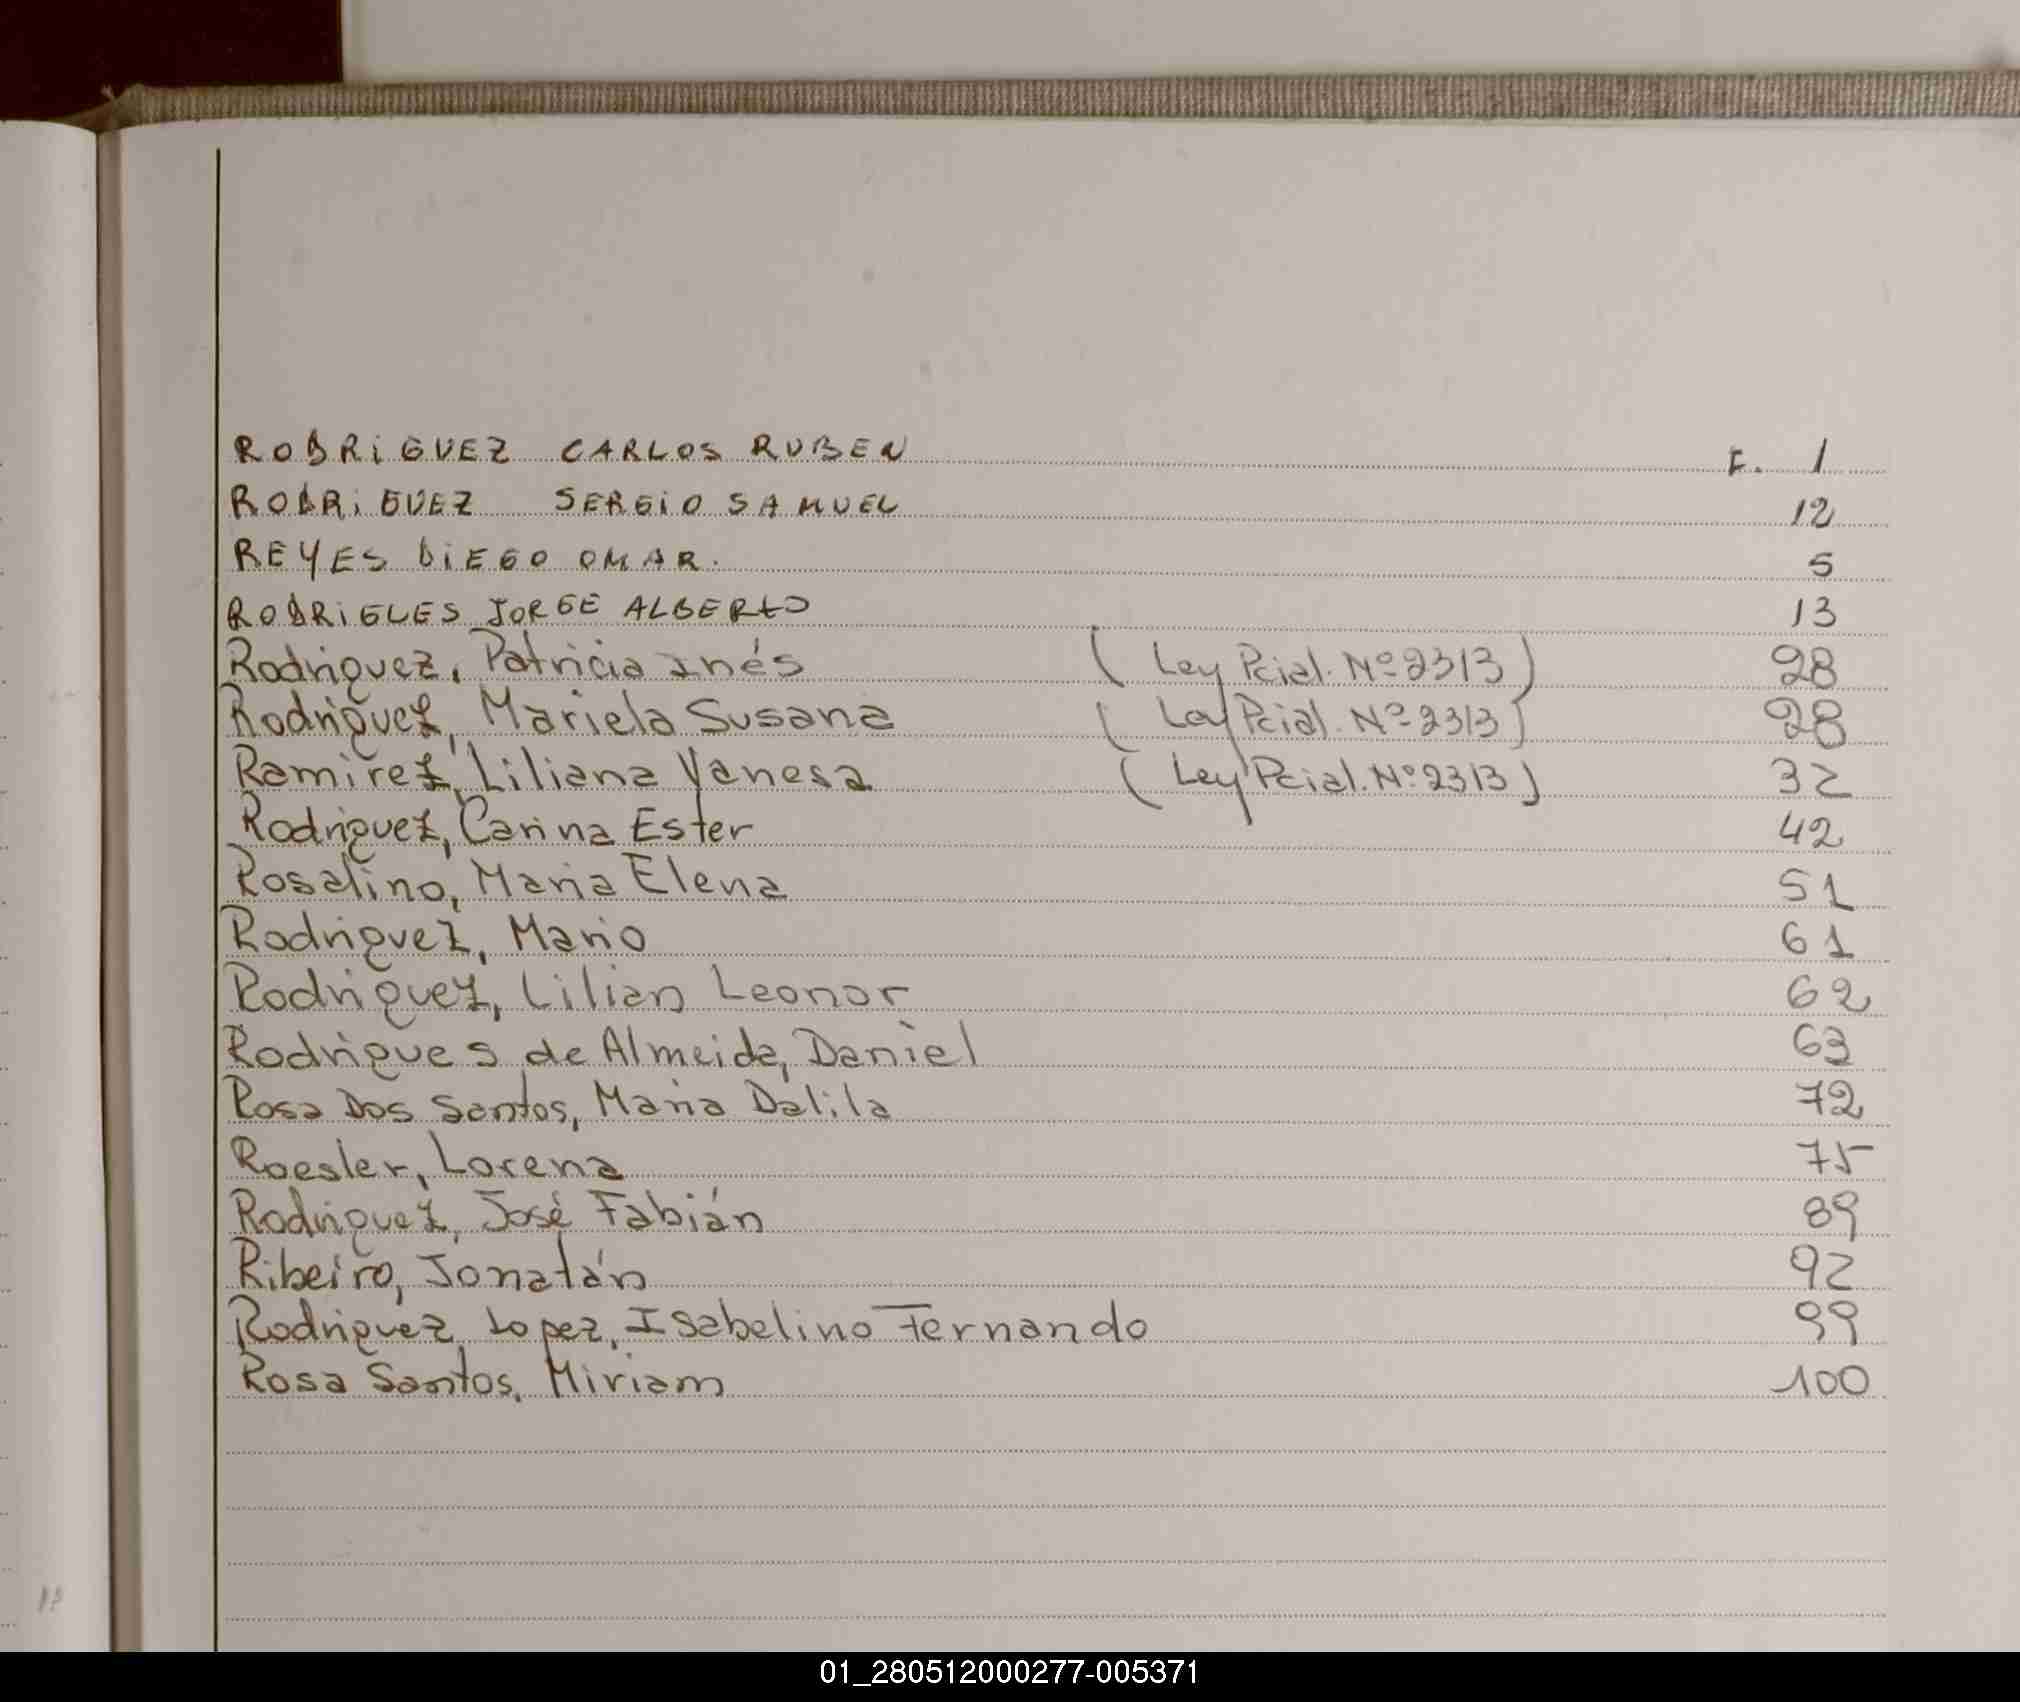 RODRIGUEZ CARLOS RUBEN F. 1
RODRIGUEZ SERGIO SAMUEL 12
REYES DIEGO OMAR. 5
RODRIGUES JORGE ALBERTO 13
Rodriguez, Patricia Inés (Ley Pcial. Nº 2313) 28
Rodriguez, Mariela Susana (Ley Pcial. Nº 2313) 28
Ramirez, Liliana Vanesa (Ley Pcial. Nº 2313) 32
Rodriguez, Carina Ester 42
Rosalino, Maria Elena 51
Rodriguez, Mario 61
Rodriguez, Lilian Leonor 62
Rodrigues de Almeida, Daniel 63
Rosa Dos Santos, Maria Dalila 72
Roesler, Lorena 75
Rodriguez, José Fabián 89
Ribeiro, Jonatán 92
Rodriguez Lopez, Isabelino Fernando 99
Rosa Santos, Miriam 100
01_280512000277-005371